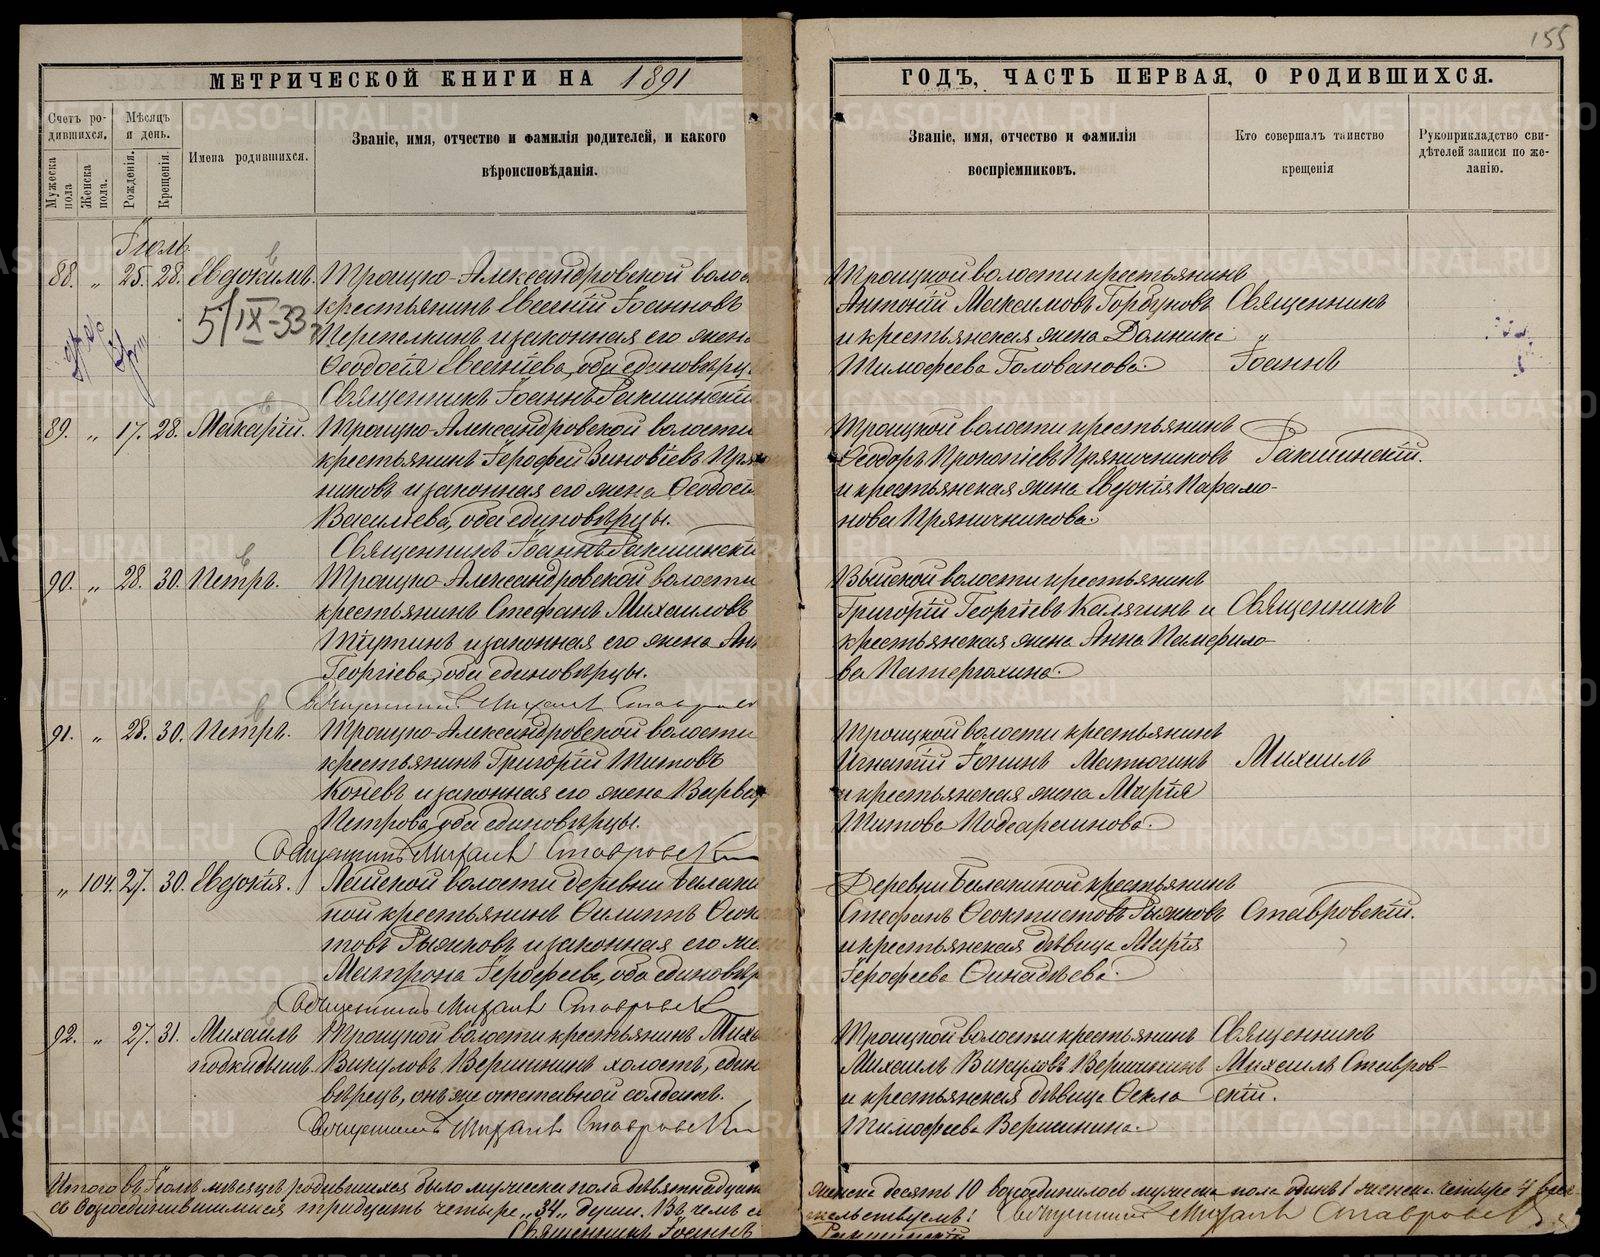 155
МЕТРИЧЕСКОЙ КНИГИ НА 1891
ГОДЪ, ЧАСТЬ ПЕРВАЯ, О РОДИВШИХСЯ.
Счетъ ро-
дившихся.
Мужеска пола
Женска пола.
Мѣсяцъ
и день.
Рожденія.
Крещенія.
Имена родившихся.
Званіе, имя, отчество и фамилія родителей, и какого
вѣроисповѣданія.
Званіе, имя, отчество и фамилія
воспріемниковъ.
Кто совершалъ таинство
крещенія
Рукоприкладство сви-
дѣтелей записи по же-
ланію.
Іюль.
88. „ 25. 28. Евдокимъ. Троицко-Александровской волос
крестьянинъ Евгеній Іоанновъ
5/IX-33
Перепелкинъ и законная его жена
Ѳеодосія Евгеніева, оба единовѣрцы
Священникъ Іоаннъ Ракшинскій
Троицкой волости крестьянинъ
Антоній Максимовъ Горбуновъ
и крестьянская жена Домника
Тимофеева Голованова.
Священникъ
„
Іоаннъ
89. „ 17. 28. Макарій. Троицко-Александровской волости
крестьянинъ Герофей Зиновіевъ Пря
никовъ и законная его жена Ѳеодосі
Васильева, оба единовѣрцы.
Священникъ Іоаннъ Ракшински
Троицкой волости крестьянинъ
Ѳеодоръ Прокопіевъ Пряничниковъ
и крестьянская жена Евдокія Парамо-
нова Пряничникова.
Ракшинскій.
90. „ 28. 30. Петръ. Троицко-Александровской волости
крестьянинъ Стефанъ Михаиловъ
и законная его жена Ан
Георгіева, оба единовѣрцы.
Священникъ Михаилъ Ставровс
Выйской волости крестьянинъ
Григорій Георгіевъ Калягинъ и
крестьянская жена Анна Памфило-
ва
Священникъ
91. „ 28. 30. Петръ. Троицко-Александровской волости
крестьянинъ Григорій Титовъ
Коневъ и законная его жена Варвар
Петрова, оба единовѣрцы.
Священникъ Михаилъ Ставровскій
Троицкой волости крестьянинъ
Игнатій Іонинъ Матюгинъ
и крестьянская жена Марія
Титова
Михаилъ
„ 104. 27. 30. Евдокія. Лайской волости деревни Балаки
ной крестьянинъ Филиппъ Ѳеок
товъ Рыжковъ и законная его же
Матрона Герофеева, оба единовѣр
Священникъ Михаилъ Ставровскій
Деревни Балакиной крестьянинъ
Стефанъ Ѳеоктистовъ Рыжковъ
и крестьянская дѣвица Марія
Герофеева
Ставровскій.
92. „ 27. 31. Михаилъ Троицкой волости крестьянинъ Миха
подкидышъ. Викуловъ Вершининъ холостъ, едино
вѣрецъ, онъ же отставной солдатъ.
Священникъ Михаилъ Ставровскій
Троицкой волости крестьянинъ
Михаилъ Викуловъ Вершининъ
и крестьянская дѣвица Ѳекла
Тимофеева Вершинина.
Священникъ
Михаилъ Ставров-
скій.
Итого въ Іюлѣ мѣсяцѣ родившихся было мужеска пола девятнадцат
женска десять 10 возсоединилось мужеска пола одинъ 1 женска четыре 4 а все
съ возсоединившимися тридцать четыре „34„ души. Въ чемъ с
тельствуемъ: Священникъ Михаилъ Ставровскій
Священникъ Іоаннъ
Ракшинскій
METRIKI.GASO-URAL.RU